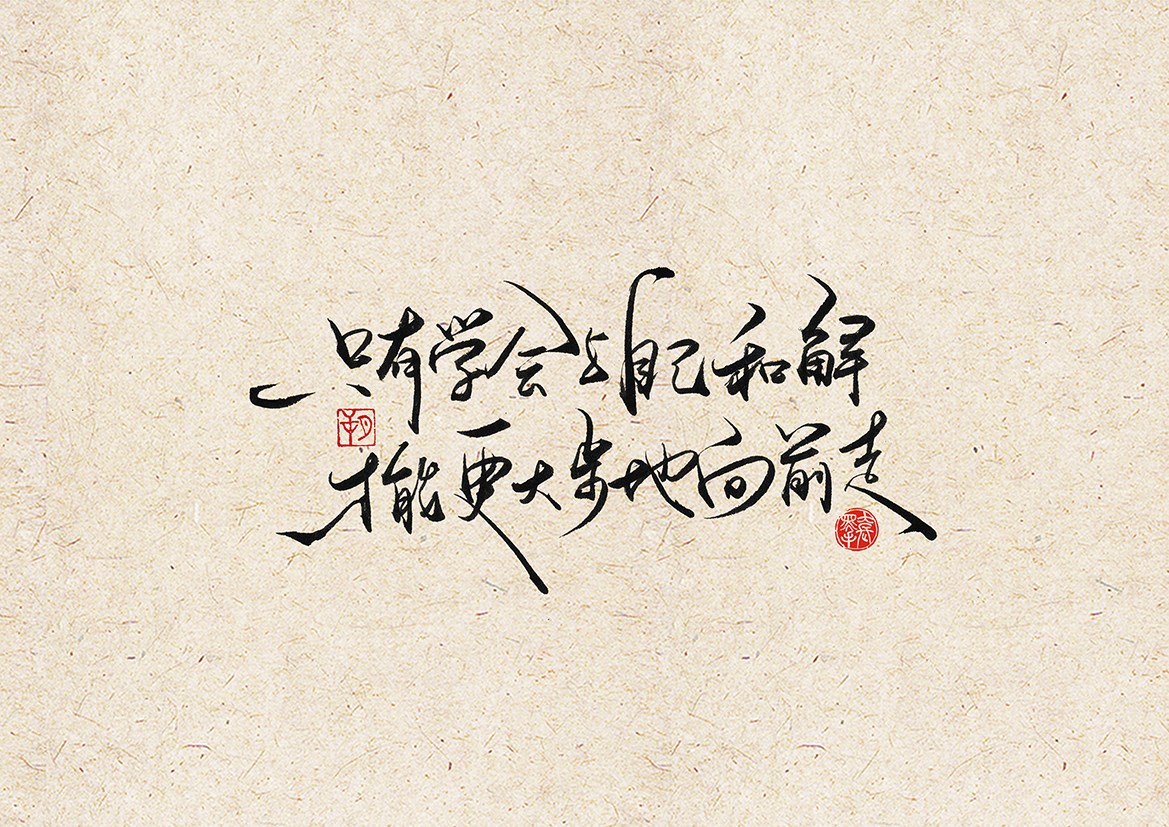 只有学会与自己和解
才能更大步地向前走